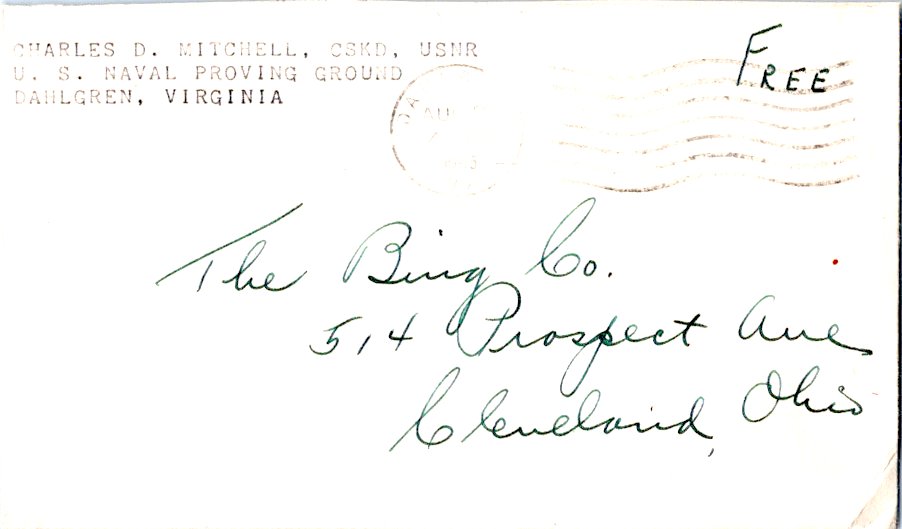 CHARLES D. MITCHELL, CSKD, USNR
U. S. NAVAL PROVING GROUND
DAHLGREN, VIRGINIA
FREE
The Bing Co.
514 Prospect Ave
Cleveland, Ohio